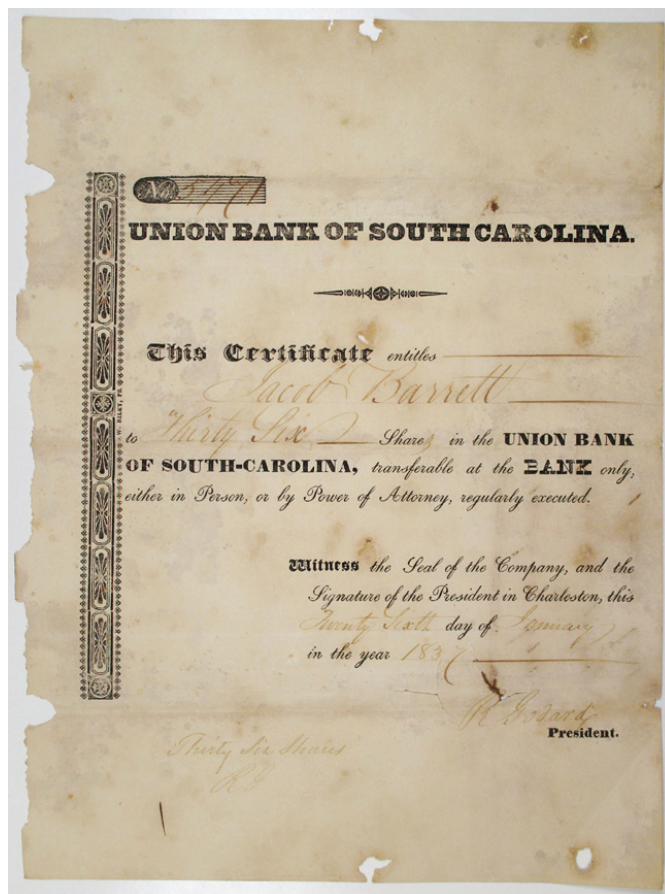 No. 5971
UNION BANK OF SOUTH CAROLINA.
This Certificate entitles
Jacob Barrett
to Thirty Six Shares in the UNION BANK
OF SOUTH-CAROLINA, transferable at the BANK only,
either in Person, or by Power of Attorney, regularly executed.
Witness the Seal of the Company, and the
Signature of the President in Charleston, this
Twenty Sixth day of January
in the year 1837
R Godard
President.
Thirty Six Shares
RG
W. RILEY, PR.